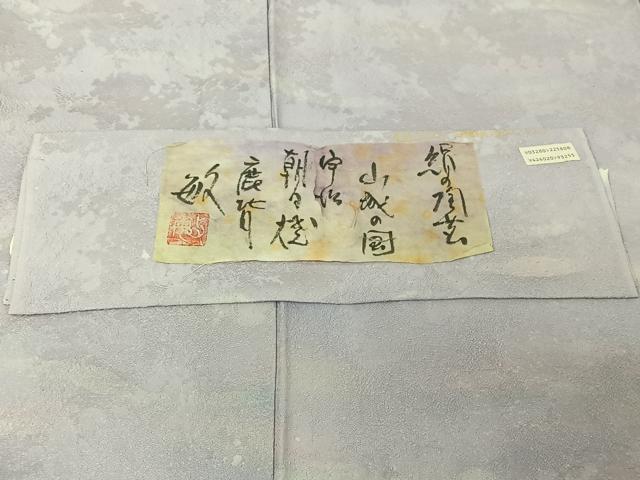 絹の陶芸
山城の国
宇治
朝日焼
鹿背
敏